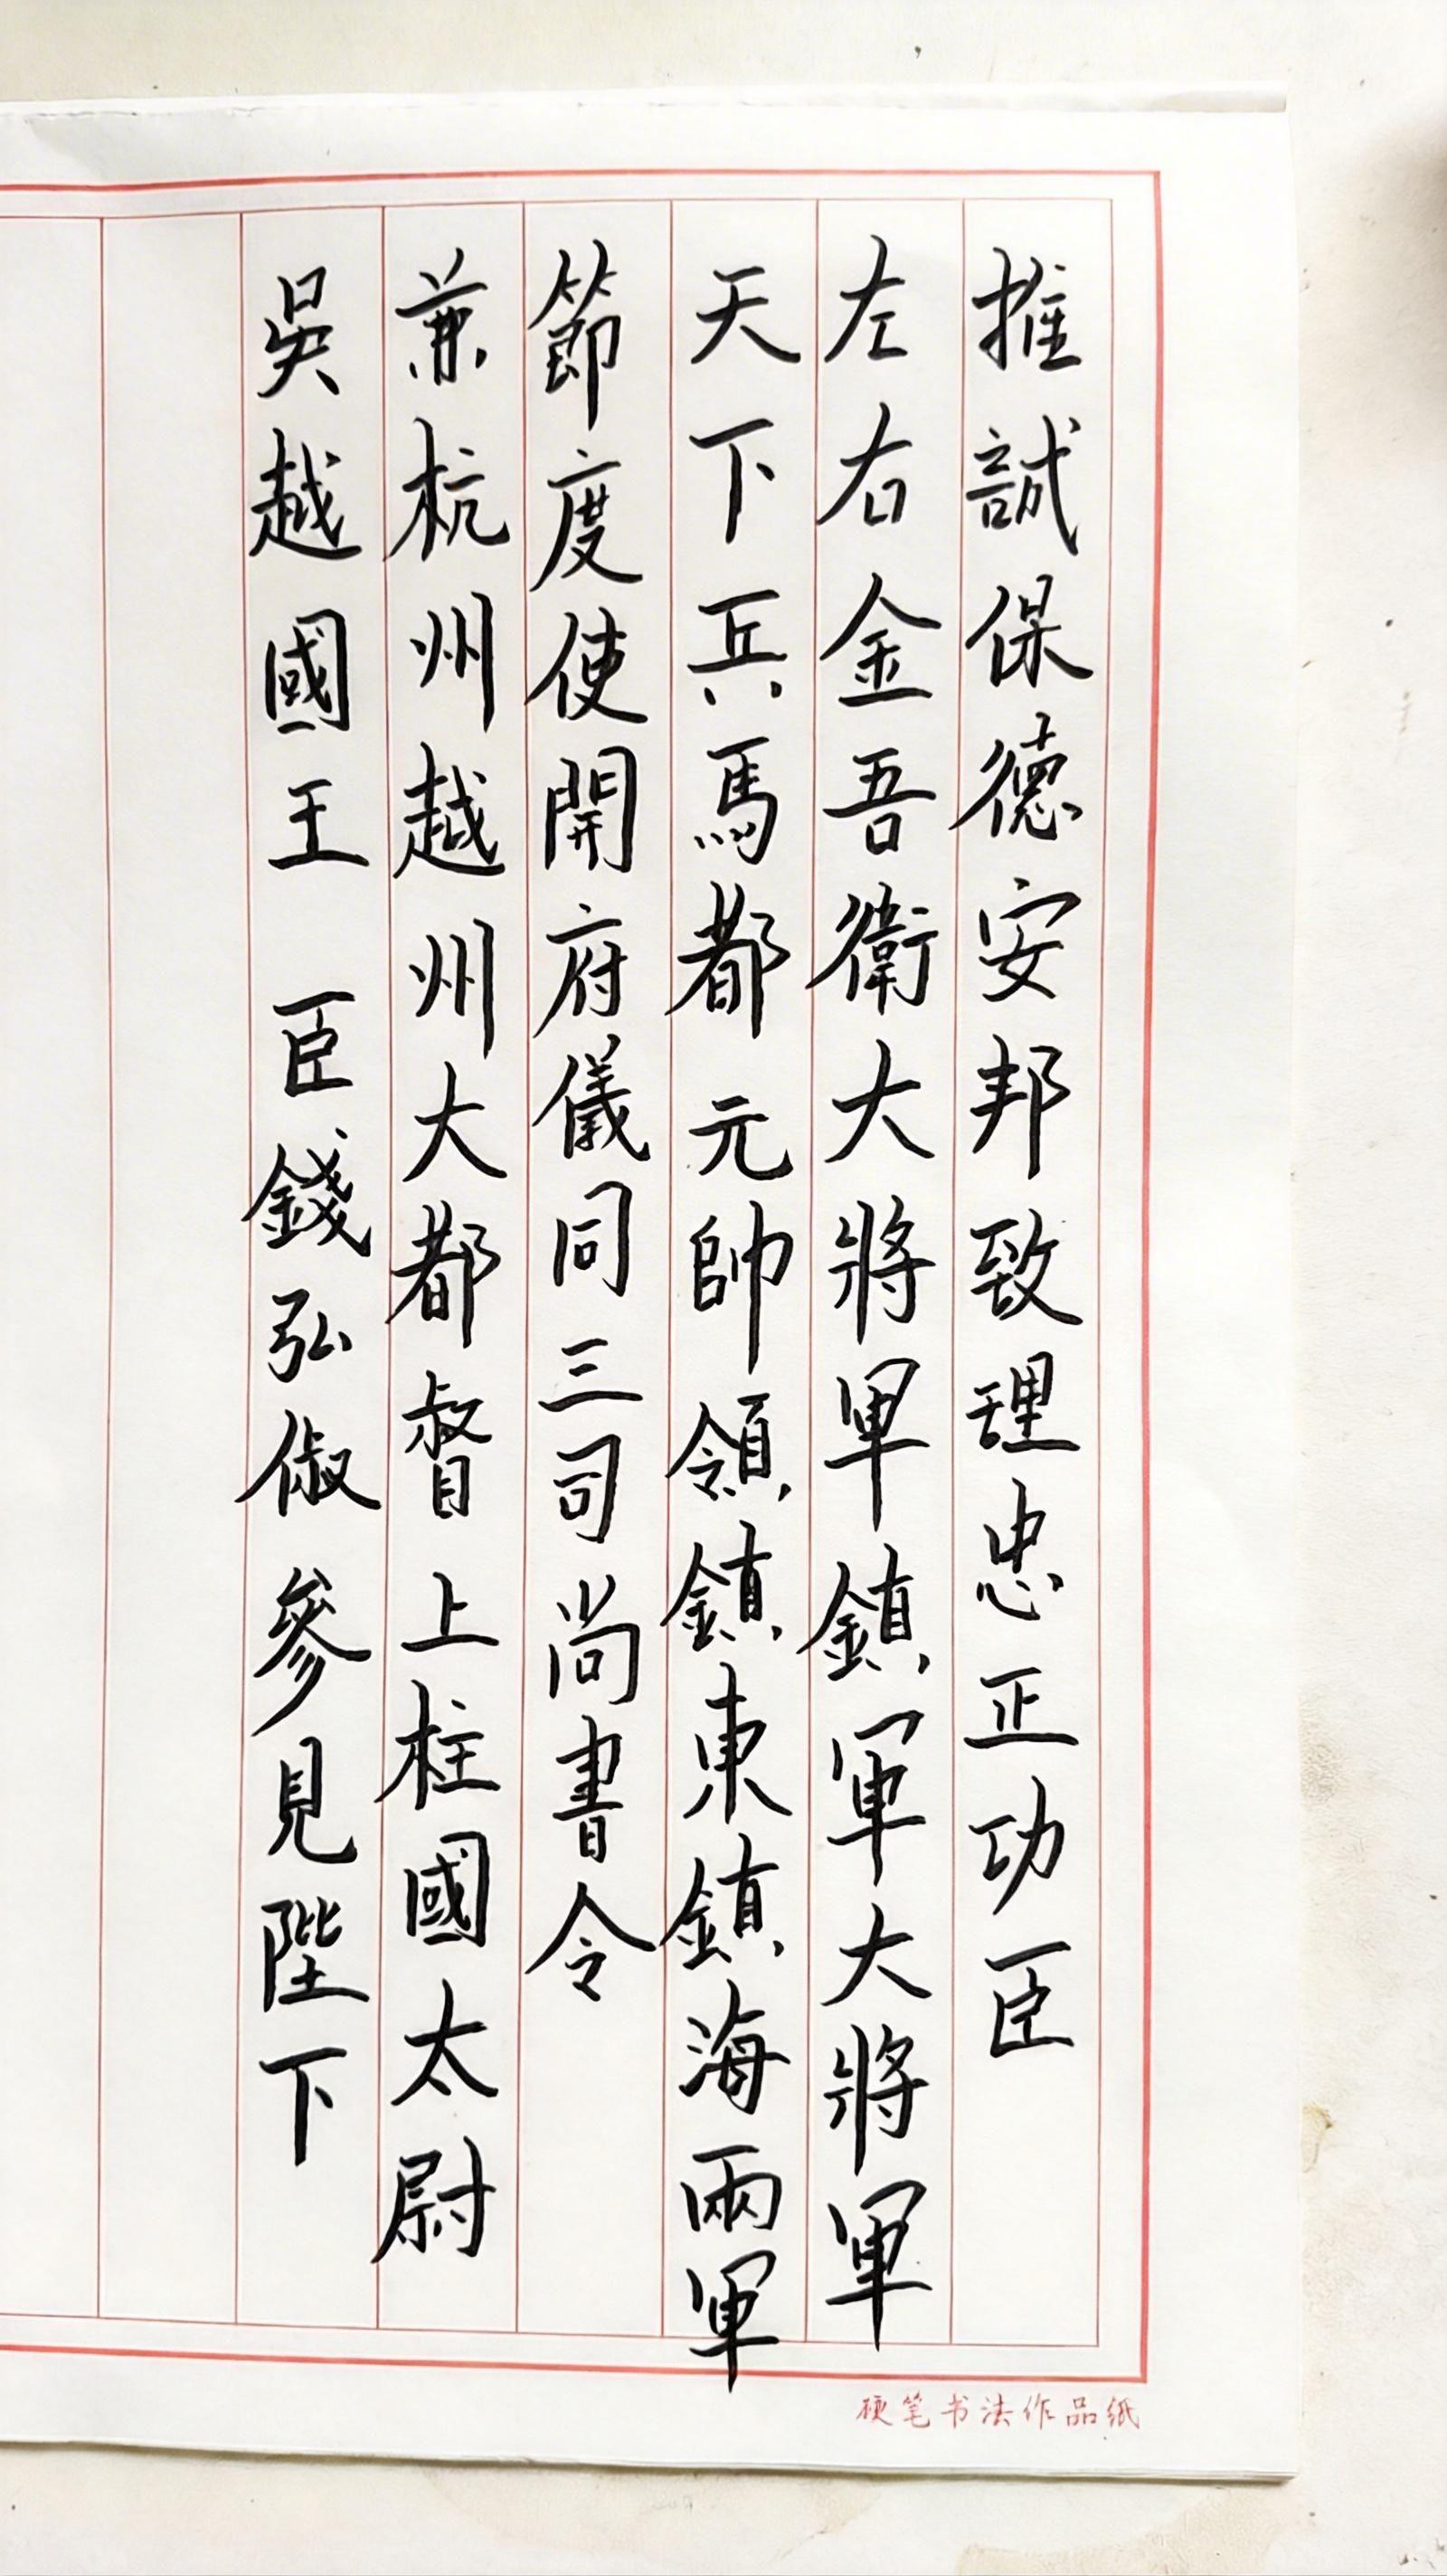 推誠保德安邦致理忠正功臣
左右金吾衛大將軍鎮軍大將軍
天下兵馬都元帥領鎮東鎮海兩軍
節度使開府儀同三司尚書令
兼杭州越州大都督上柱國太尉
吳越國王 臣錢弘俶參見陛下
硬笔书法作品纸